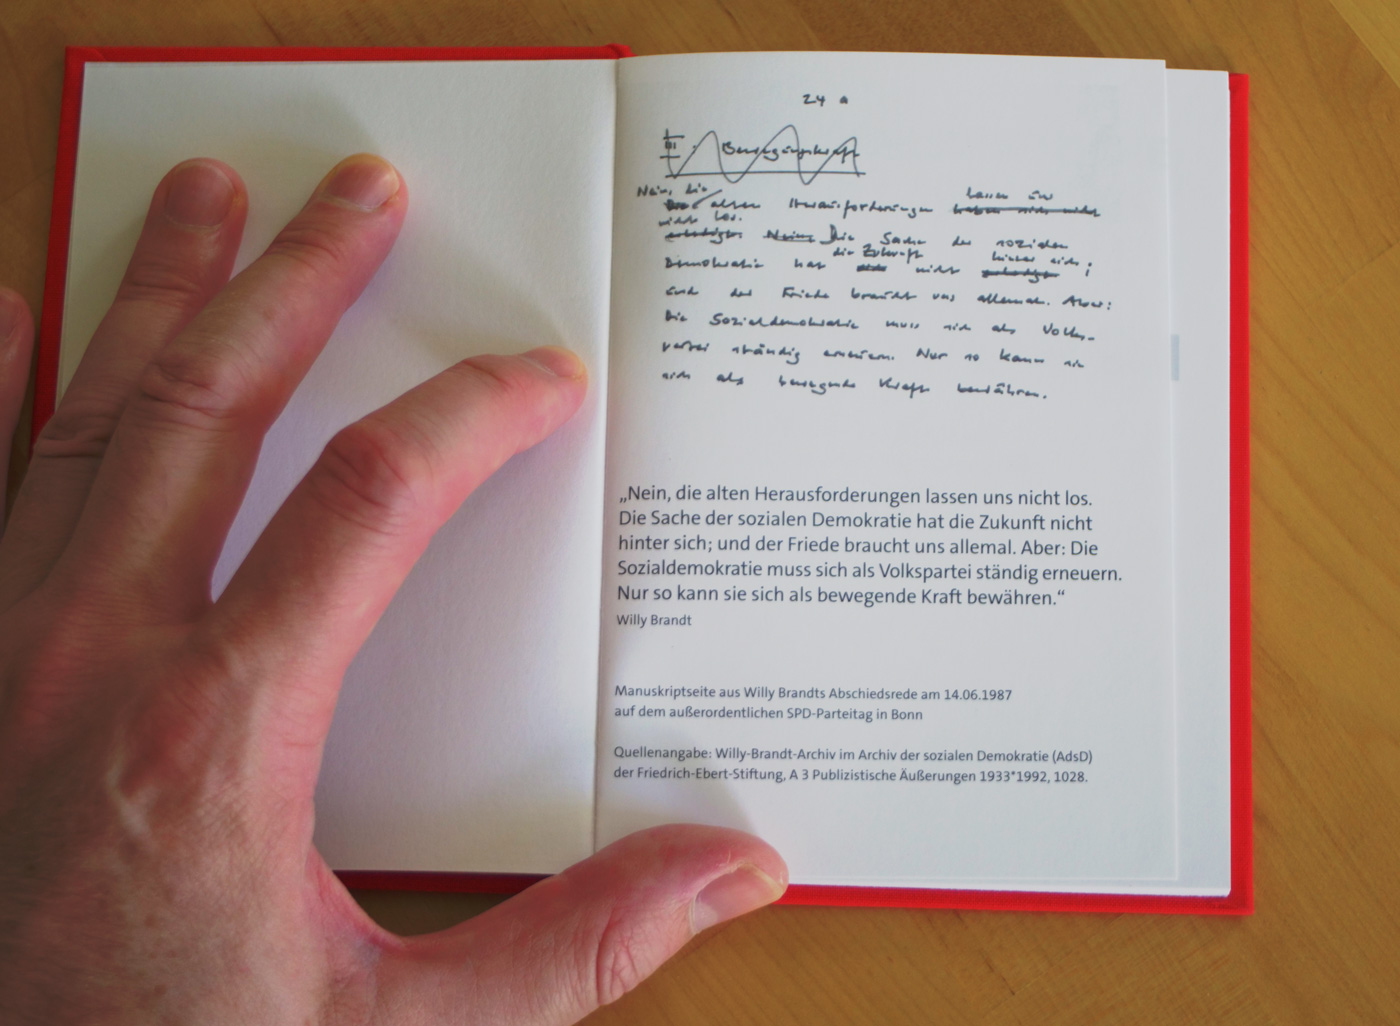 24 a
III. Bewegungskraft
Nein, die lassen uns
alten Herausforderungen haben sich nicht
nicht los.
erledigt. Nein: Die Sache der sozialen
die Zukunft hinter sich;
Demokratie hat nicht
und der Friede braucht uns allemal. Aber:
Die Sozialdemokratie muss sich als Volks-
partei ständig erneuern. Nur so kann sie
sich als bewegende Kraft bewähren.
„Nein, die alten Herausforderungen lassen uns nicht los.
Die Sache der sozialen Demokratie hat die Zukunft nicht
hinter sich; und der Friede braucht uns allemal. Aber: Die
Sozialdemokratie muss sich als Volkspartei ständig erneuern.
Nur so kann sie sich als bewegende Kraft bewähren.“
Willy Brandt
Manuskriptseite aus Willy Brandts Abschiedsrede am 14.06.1987
auf dem außerordentlichen SPD-Parteitag in Bonn
Quellenangabe: Willy-Brandt-Archiv im Archiv der sozialen Demokratie (AdsD)
der Friedrich-Ebert-Stiftung, A 3 Publizistische Äußerungen 1933*1992, 1028.